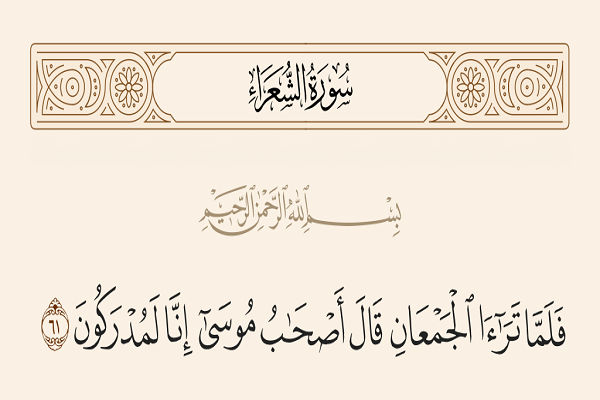 سُورَةُ الشُّعَرَاءِ
بِسْمِ ٱللَّهِ ٱلرَّحْمَٰنِ ٱلرَّحِيمِ
فَلَمَّا تَرَٰٓءَا ٱلْجَمْعَانِ قَالَ أَصْحَٰبُ مُوسَىٰٓ إِنَّا لَمُدْرَكُونَ ٦١